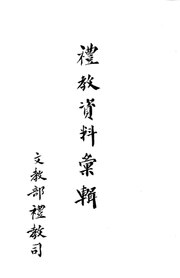 禮教資料彙輯
文教部禮教司